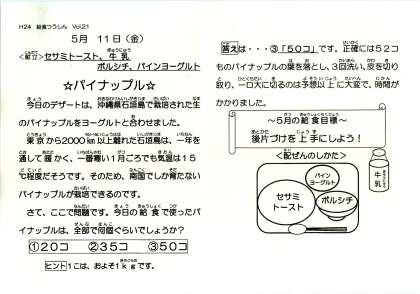 H24 給食つうしん Vol.21
5月 11日(金)
<献立>セサミトースト、牛乳
ボルシチ、パインヨーグルト
☆パイナップル☆
今日のデザートは、沖縄県石垣島で栽培された生
のパイナップルをヨーグルトと合わせました。
東京から2000km以上離れた石垣島は、一年を
通して暖かく、一番寒い1月ごろでも気温は15
℃程度だそうです。そのため、南国でしか育たない
パイナップルが栽培できるのです。
さて、ここで問題です。今日の給食で使ったパ
イナップルは、全部で何個ぐらいでしょうか?
①20コ ②35コ ③50コ
ヒント 1こは、およそ1kgです。
答えは・・・③「50コ」です。正確には52コ
ものパイナップルの葉を落とし、3回洗い、皮を切り
取り、一口大に切るのは予想以上に大変で、時間が
かかりました。
~5月の給食目標~
後片づけを上手にしよう!
<配ぜんのしかた>
パイン
ヨーグルト
セサミ
トースト
ボルシチ
牛乳